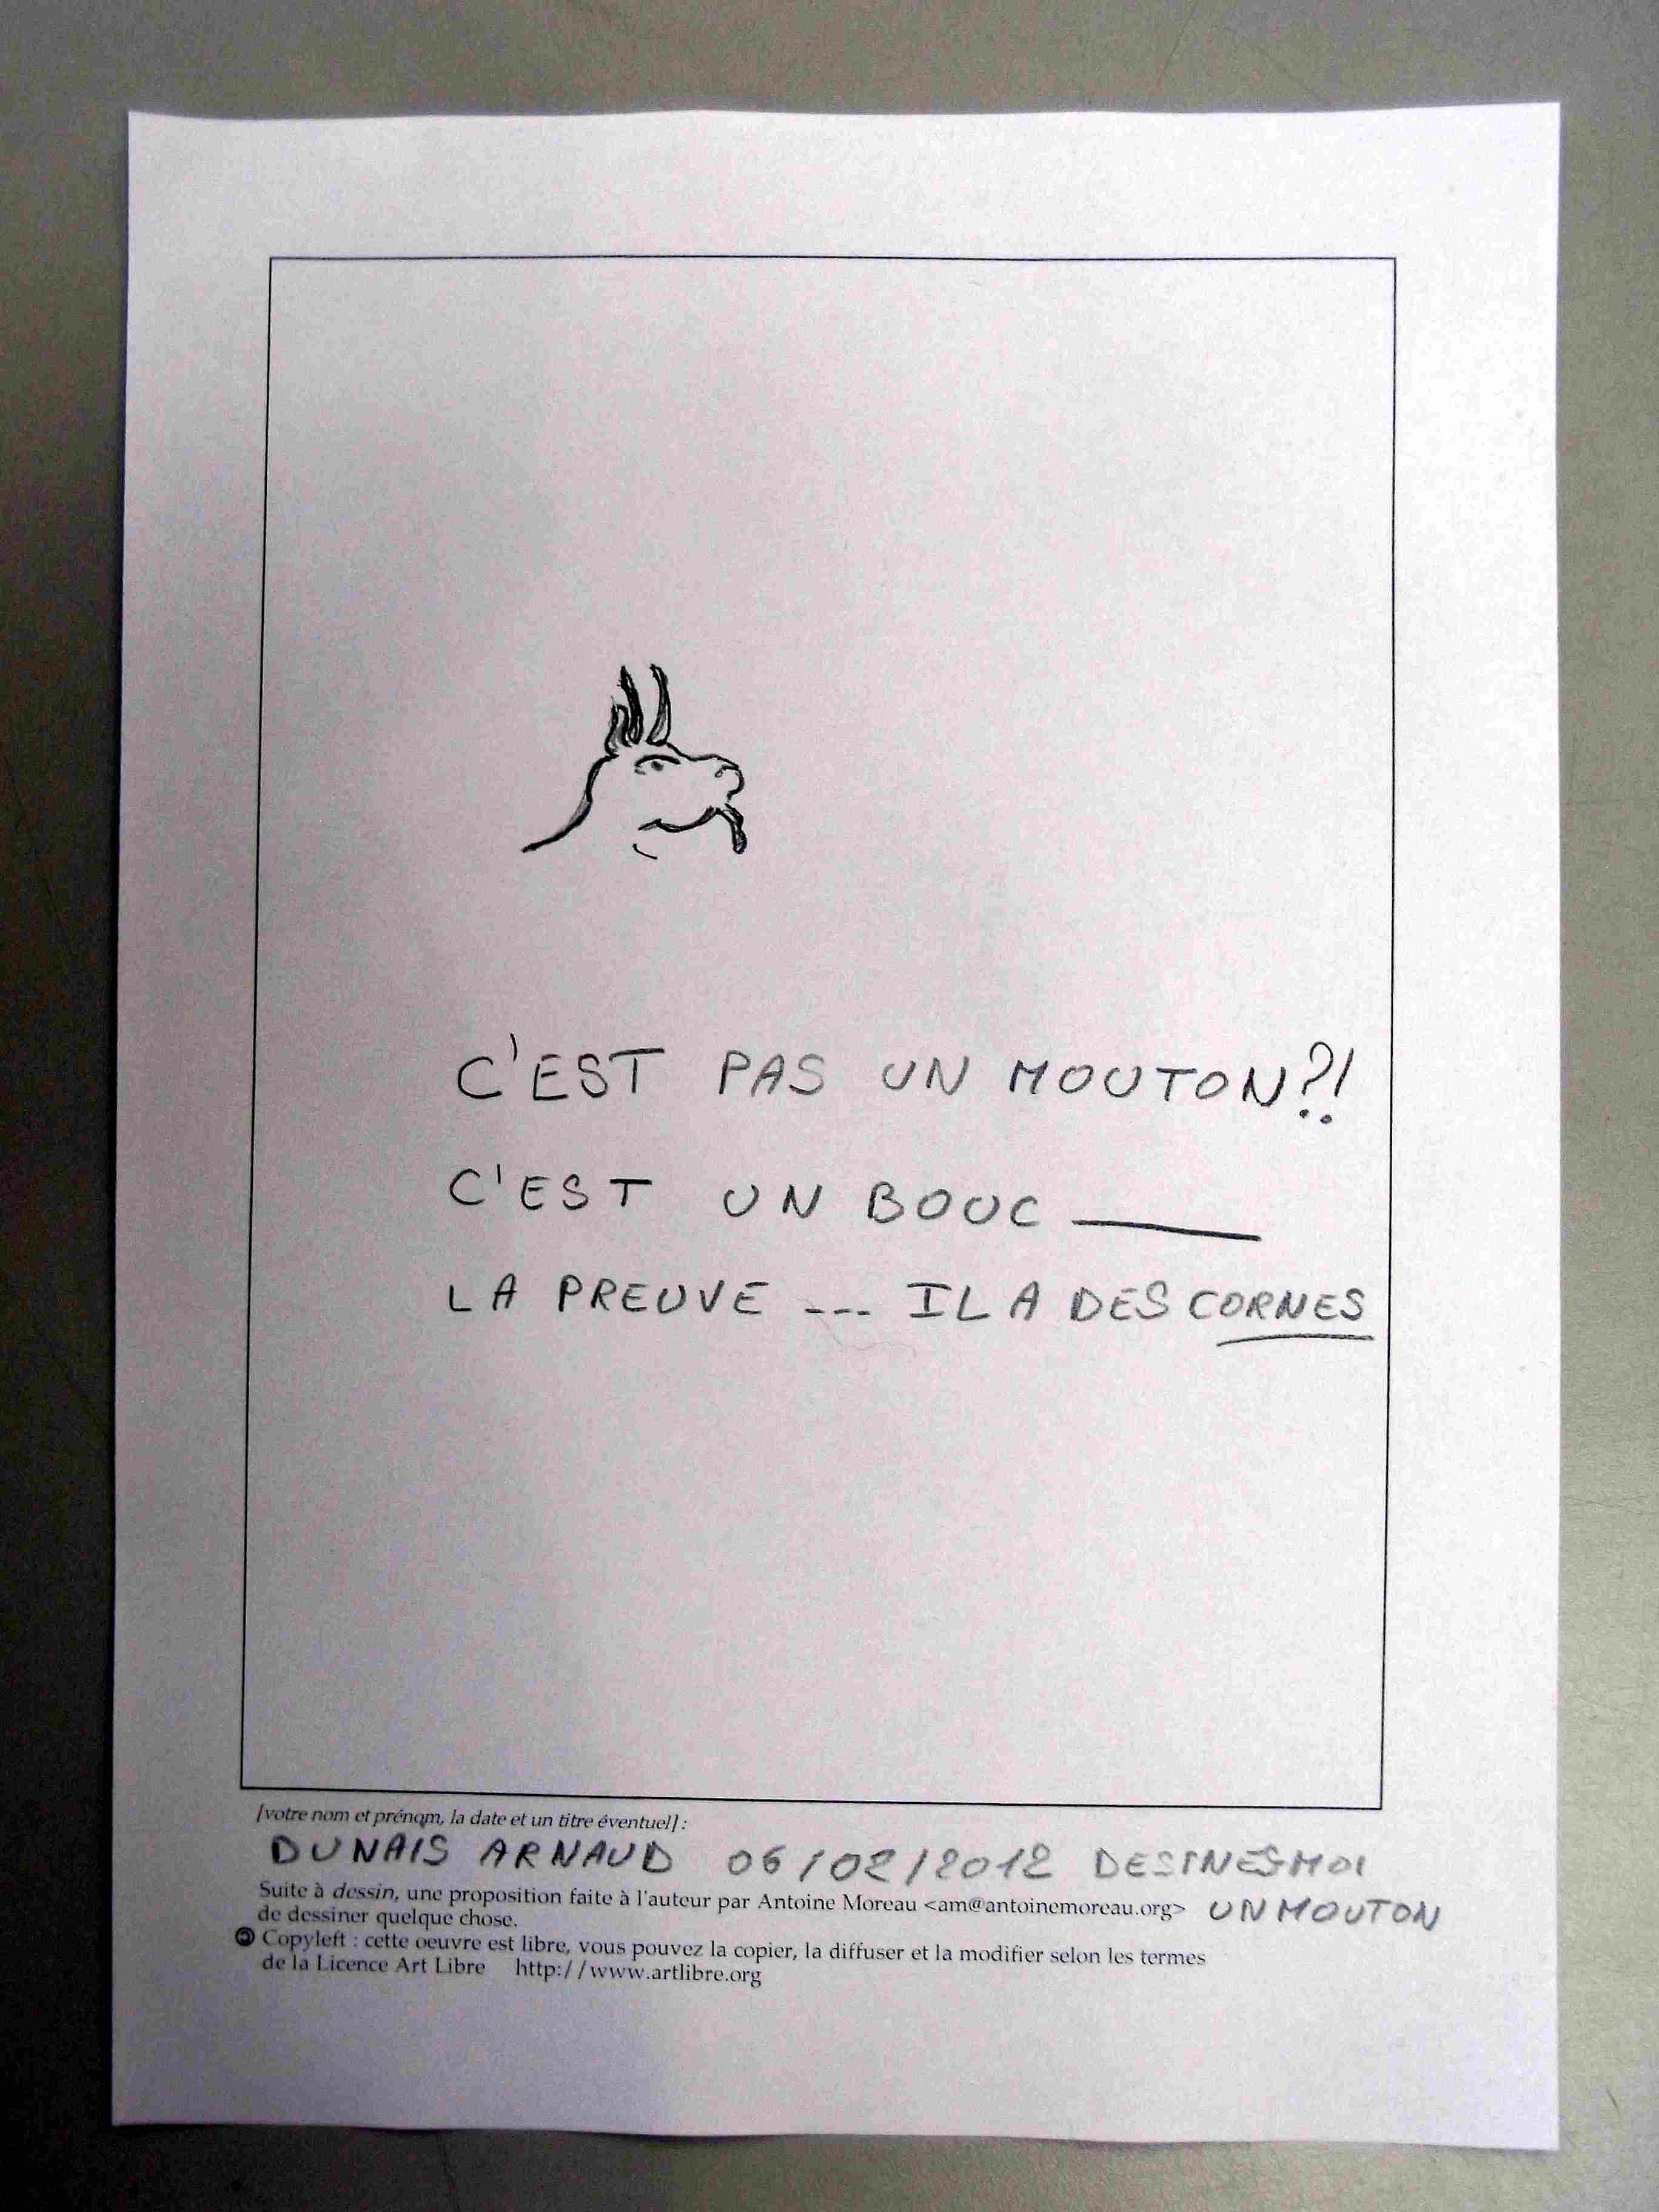 C'EST PAS UN MOUTON?!
C'EST UN BOUC ___
LA PREUVE --- IL A DES CORNES
[votre nom et prénom, la date et un titre éventuel] :
DUNAIS ARNAUD 06/02/2012 DESINES MOI
UN MOUTON
Suite à dessin, une proposition faite à l'auteur par Antoine Moreau <am@antoinemoreau.org>
de dessiner quelque chose.
Copyleft : cette oeuvre est libre, vous pouvez la copier, la diffuser et la modifier selon les termes
de la Licence Art Libre http://www.artlibre.org